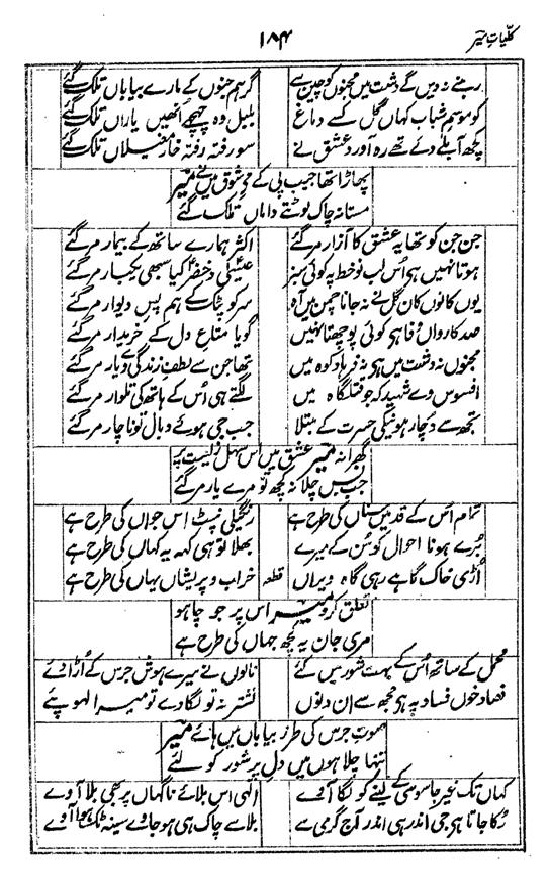 کلیاتِ میر
۱۸۴
رہنے نہ دیں گے دشت میں مجنوں کو چین سے گر ہم جنوں کے مارے بیاباں تلک گئے
کو موسم شباب کہاں گل کسے دماغ بلبل وہ چہچہے انھیں یاراں تلک گئے
کچھ آبلے دئے تھے رہ آورد عشق نے سو رفتہ رفتہ خار مغیلاں تلک گئے
پھاڑا تھا جیب پی کے مے شوق میں نے میر
مستانہ چاک لوٹتے داماں تلک گئے
جن جن کو تھا یہ عشق کا آزار مر گئے اکثر ہمارے ساتھ کے بیمار مر گئے
ہوتا نہیں ہے اس لب نو خط پہ کوئی سبز عیسیٰ و خضر کیا سبھی یکبار مر گئے
یوں کانوں کان گل نے نہ جانا چمن میں آہ سر کو پٹک کے ہم پس دیوار مر گئے
صد کارواں وفا ہے کوئی پوچھتا نہیں گویا متاع دل کے خریدار مر گئے
مجنوں نہ دشت میں ہے نہ فرہاد کوہ میں تھا جن سے لطف زندگی وے یار مر گئے
افسوس وے شہید کہ جو قتلگاہ میں لگتے ہی اس کے ہاتھ کی تلوار مر گئے
تجھ سے دچار ہونیکی حسرت کے مبتلا جب جی ہوئے وبال تو ناچار مر گئے
گھبرا نہ میر عشق میں اس سہل زیست پر
جب بس چلا نہ کچھ تو مرے یار مر گئے
تمام اس کے قد میں سناں کی طرح ہے رنگیلی نپٹ اس جواں کی طرح ہے
برے ہونا احوال کو سن کے میرے بھلا تو ہی کہہ یہ کہاں کی طرح ہے
اڑی خاک گاہے رہی گاہ ویراں قطعہ خراب و پریشاں یہاں کی طرح ہے
تعلق کرو میر اس پر جو چاہو
مری جان یہ کچھ جہاں کی طرح ہے
محمل کے ساتھ اس کے بہت شور میں کئے نالوں نے میرے ہوش جرس کے اڑا دئے
فصاد خوں فساد پہ ہے مجھ سے ان دنوں نشتر نہ تو لگا دے تو میرا لہو پئے
صوت جرس کی طرز بیاباں میں ہائے میر
تنہا چلا ہوں میں دل پر شور کو لئے
کہاں تک غیر جاسوسی کے لینے کو لگا آوے الٰہی اس بلائے ناگہاں پر بھی بلا آوے
رکا جاتا ہے جی اندر ہی اندر آج گرمی سے بلا سے چاک ہی ہو جاوے سینہ ٹک ہوا آوے